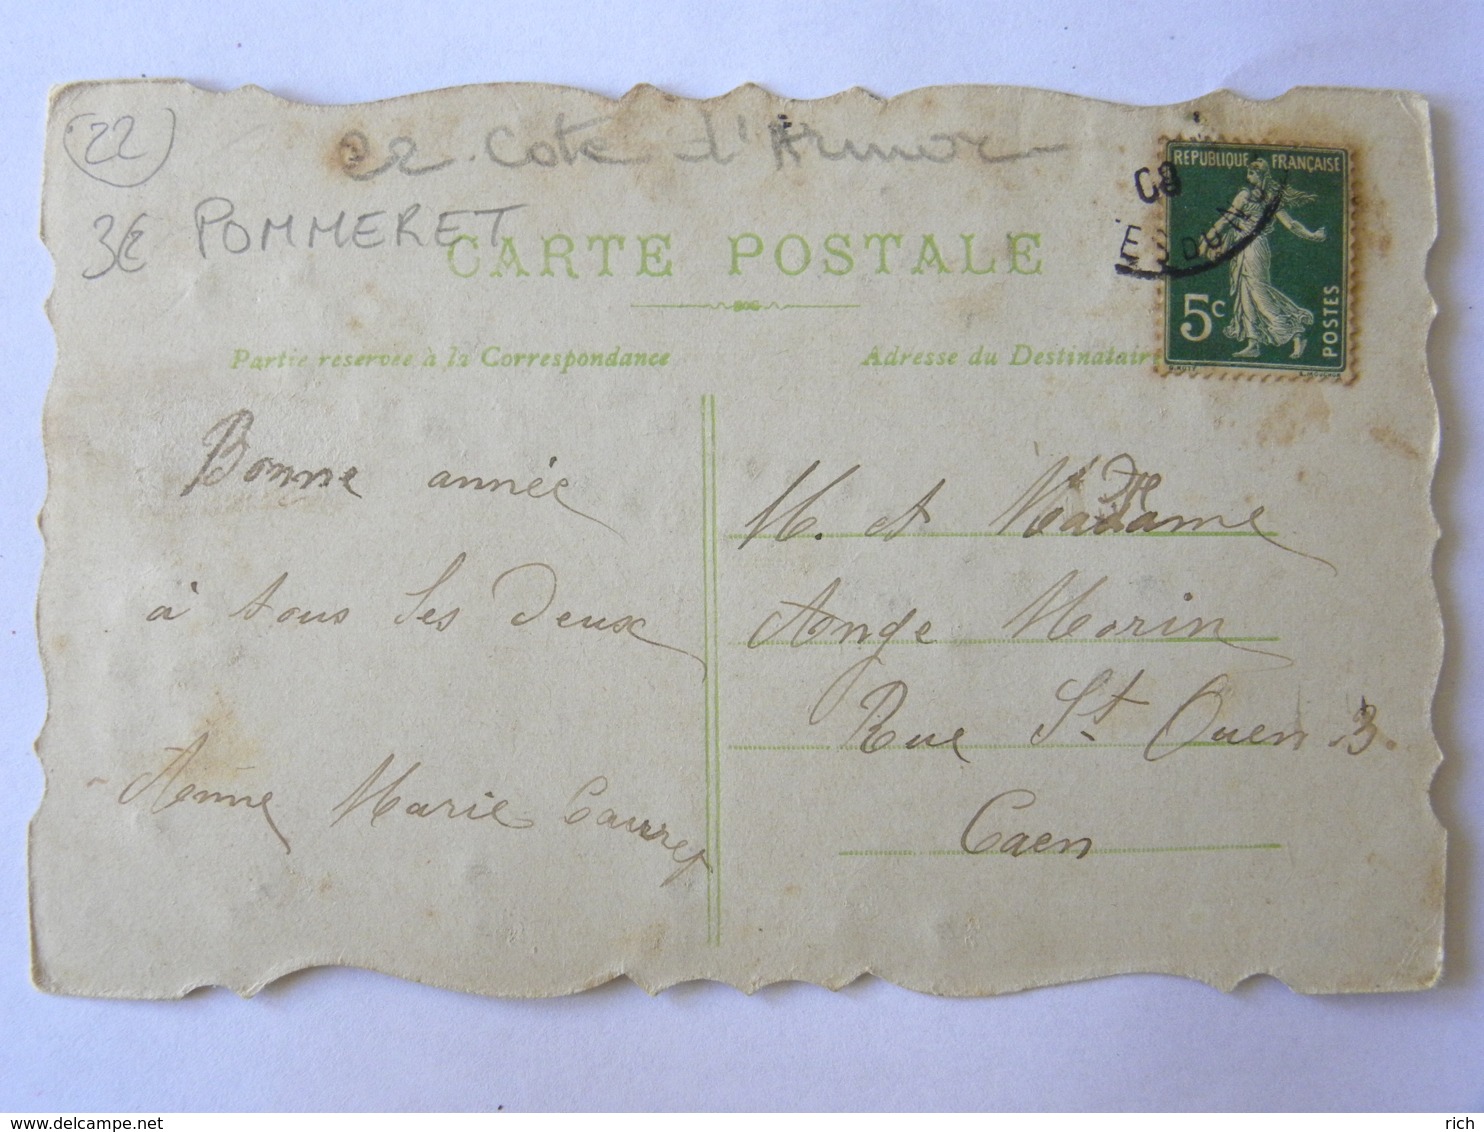 (22)
22 Cote d'Armor
3€ POMMERET
CARTE POSTALE
Partie reservee à la Correspondance
Adresse du Destinataire
REPUBLIQUE FRANÇAISE
5c
POSTES
08
Bonne année
à tous les deux
Anne Marie
M. et Madame
Ange Morin
Rue St Ouen 3.
Caen
rich